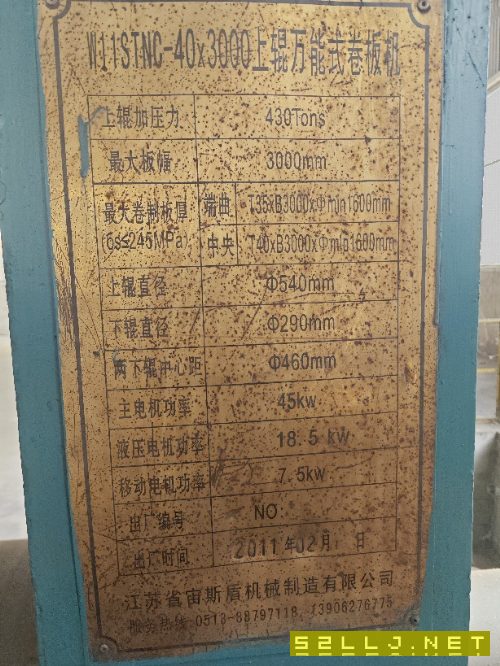 W11STNC-40x3000上辊万能式卷板机
上辊加压力 430Tons
最大板幅 3000mm
最大卷制板厚 端曲 T35xB3000xΦmin1600mm
(σs≤245MPa) 中央 T40xB3000xΦmin1600mm
上辊直径 Φ540mm
下辊直径 Φ290mm
两下辊中心距 Φ460mm
主电机功率 45kw
液压电机功率 18.5 kw
移动电机功率 7.5kw
出厂编号 NO
出厂时间 2011年02月 日
江苏省宙斯盾机械制造有限公司
服务热线:0513-88797118 13906276775
52LLJ.NET